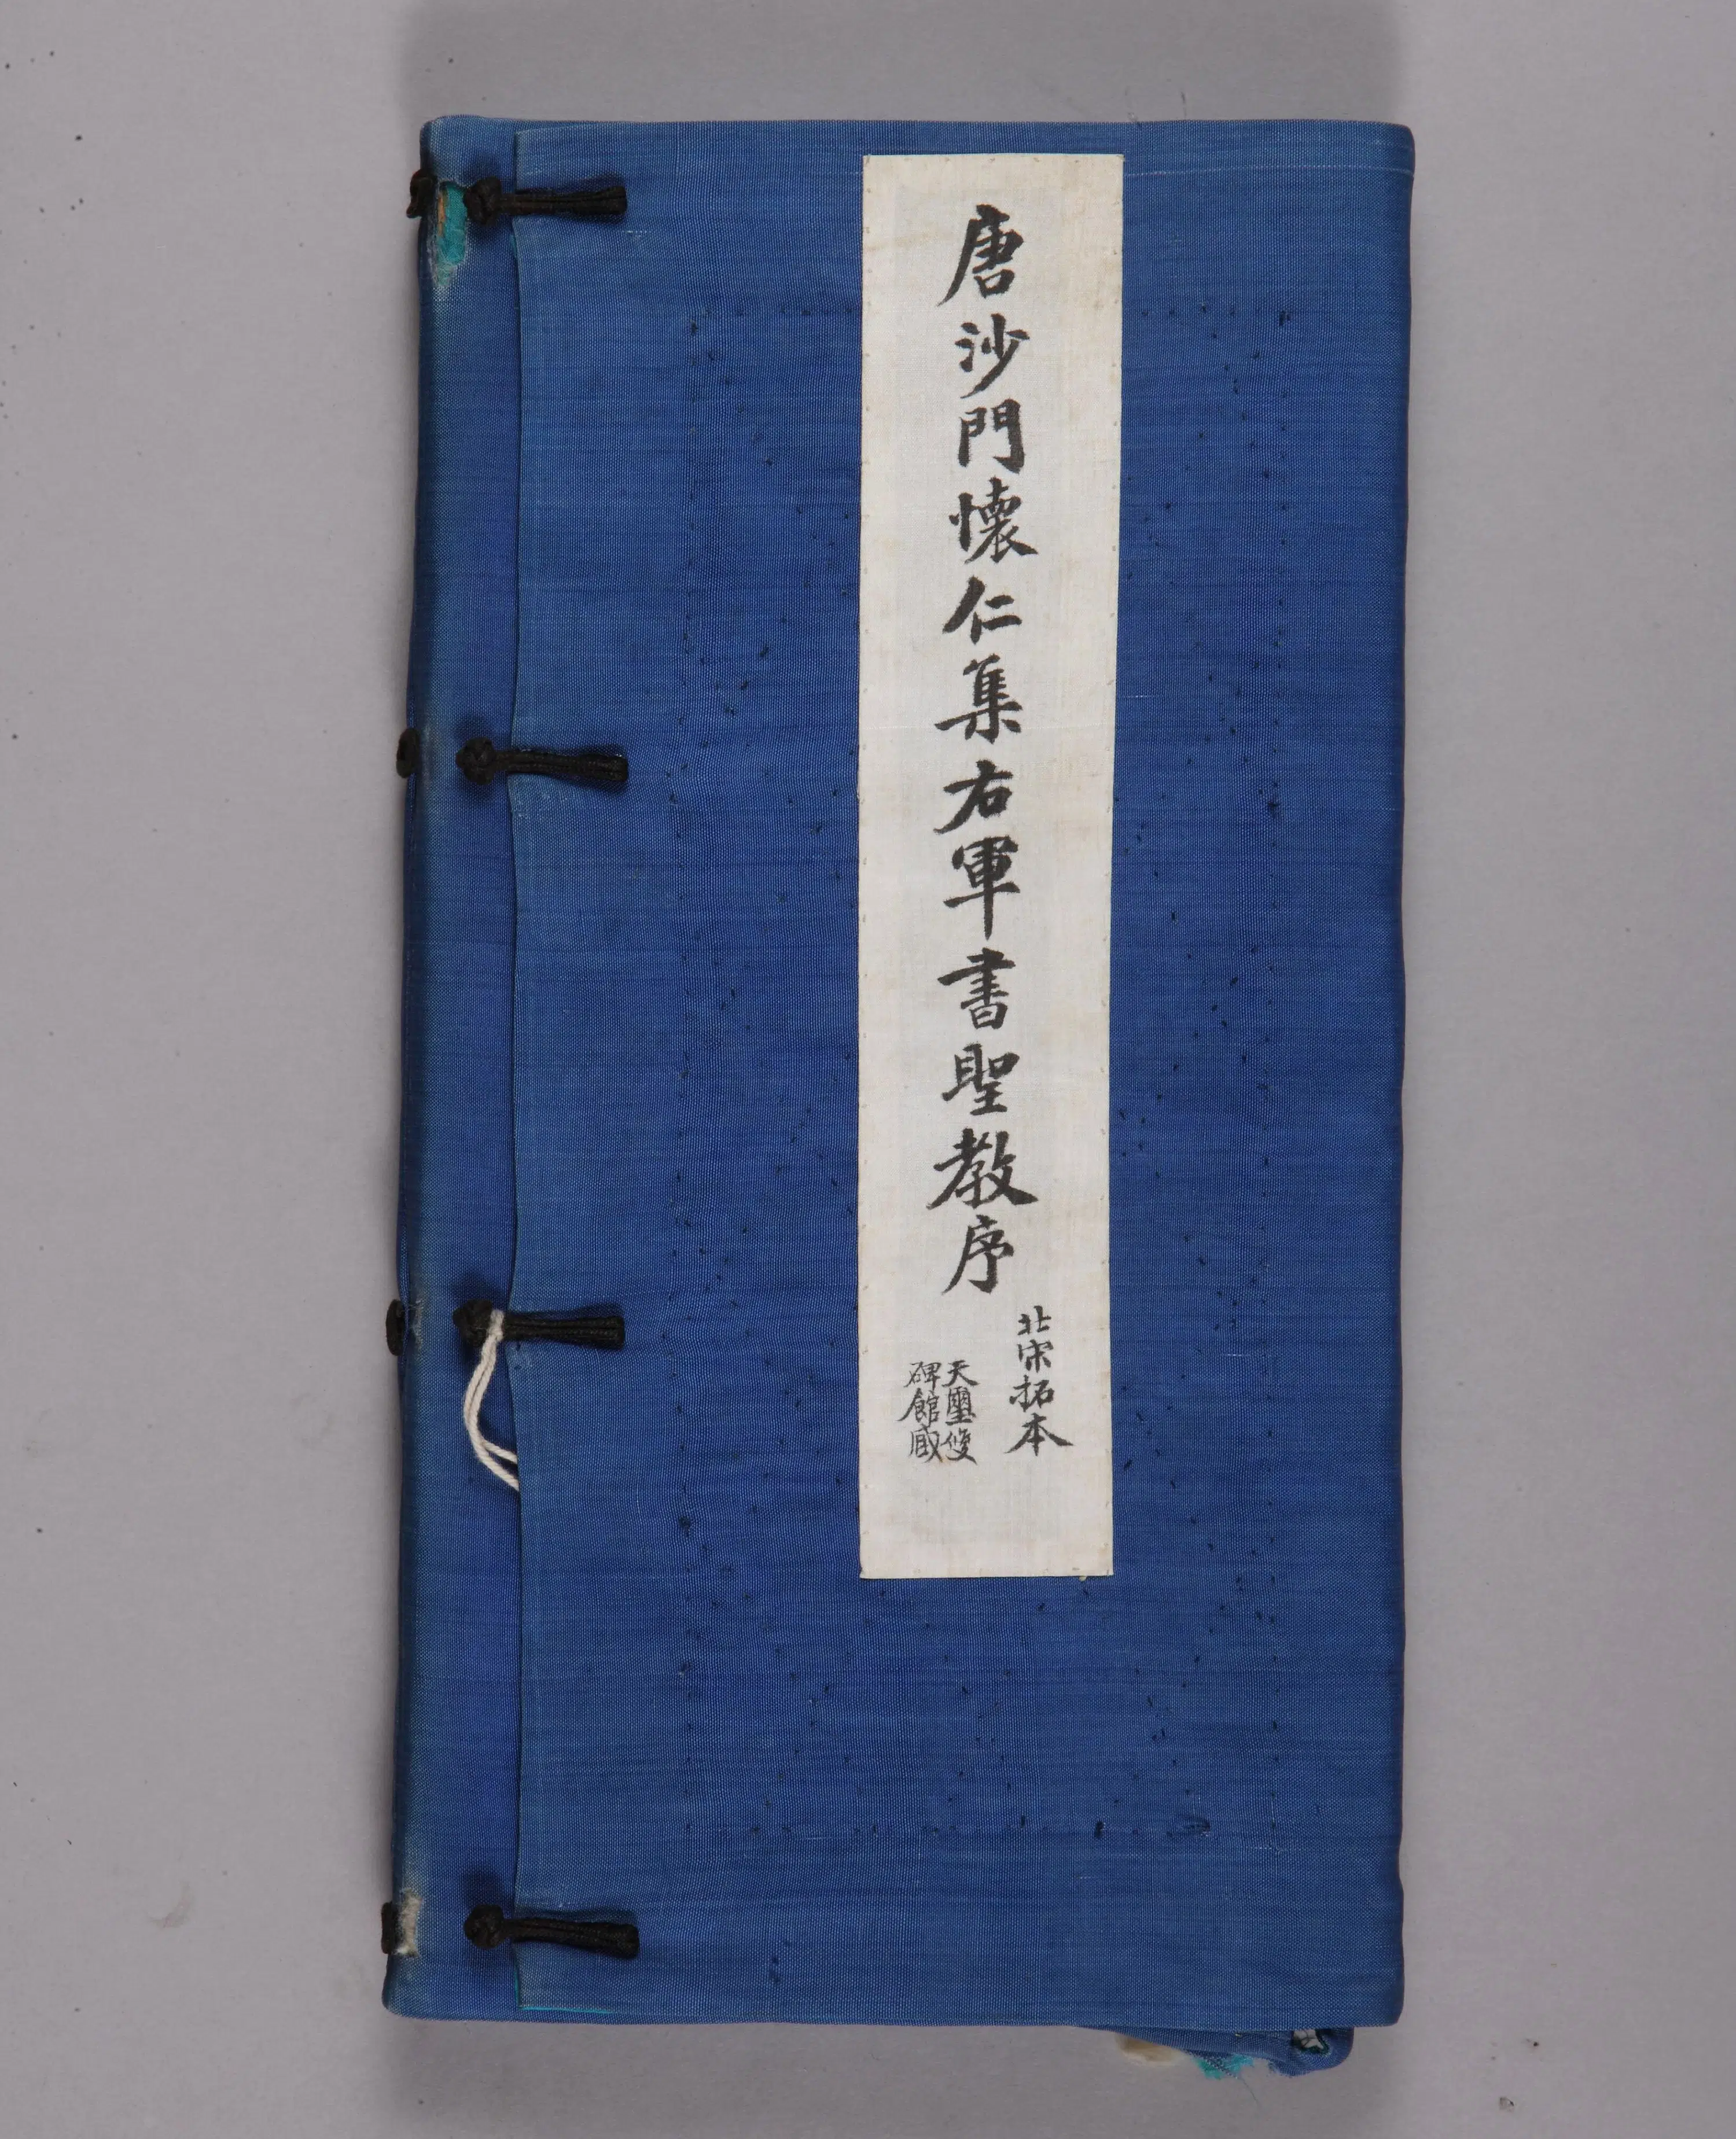 唐沙門懷仁集右軍書聖教序
北宋拓本
天璽雙
碑館臧